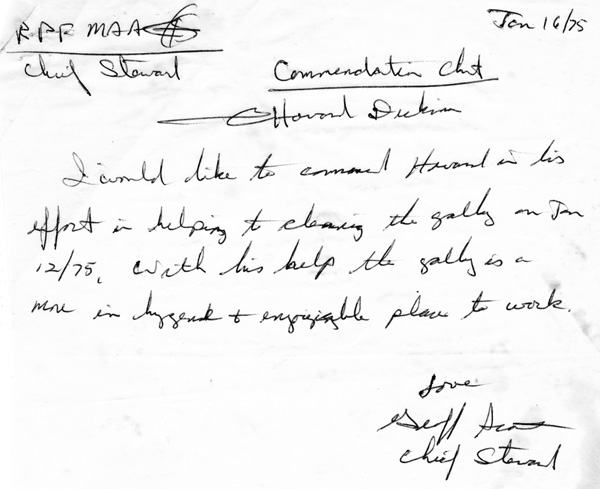 RPF MAA
Jan 16/75
Chief Steward
Commendation Cht
Howard Dickman
I would like to commend Howard in his
effort in helping to cleaning the gally on Jan
12/75, with his help the gally is a
more in & enjoyable place to work.
Love
Geoff
Chief Steward